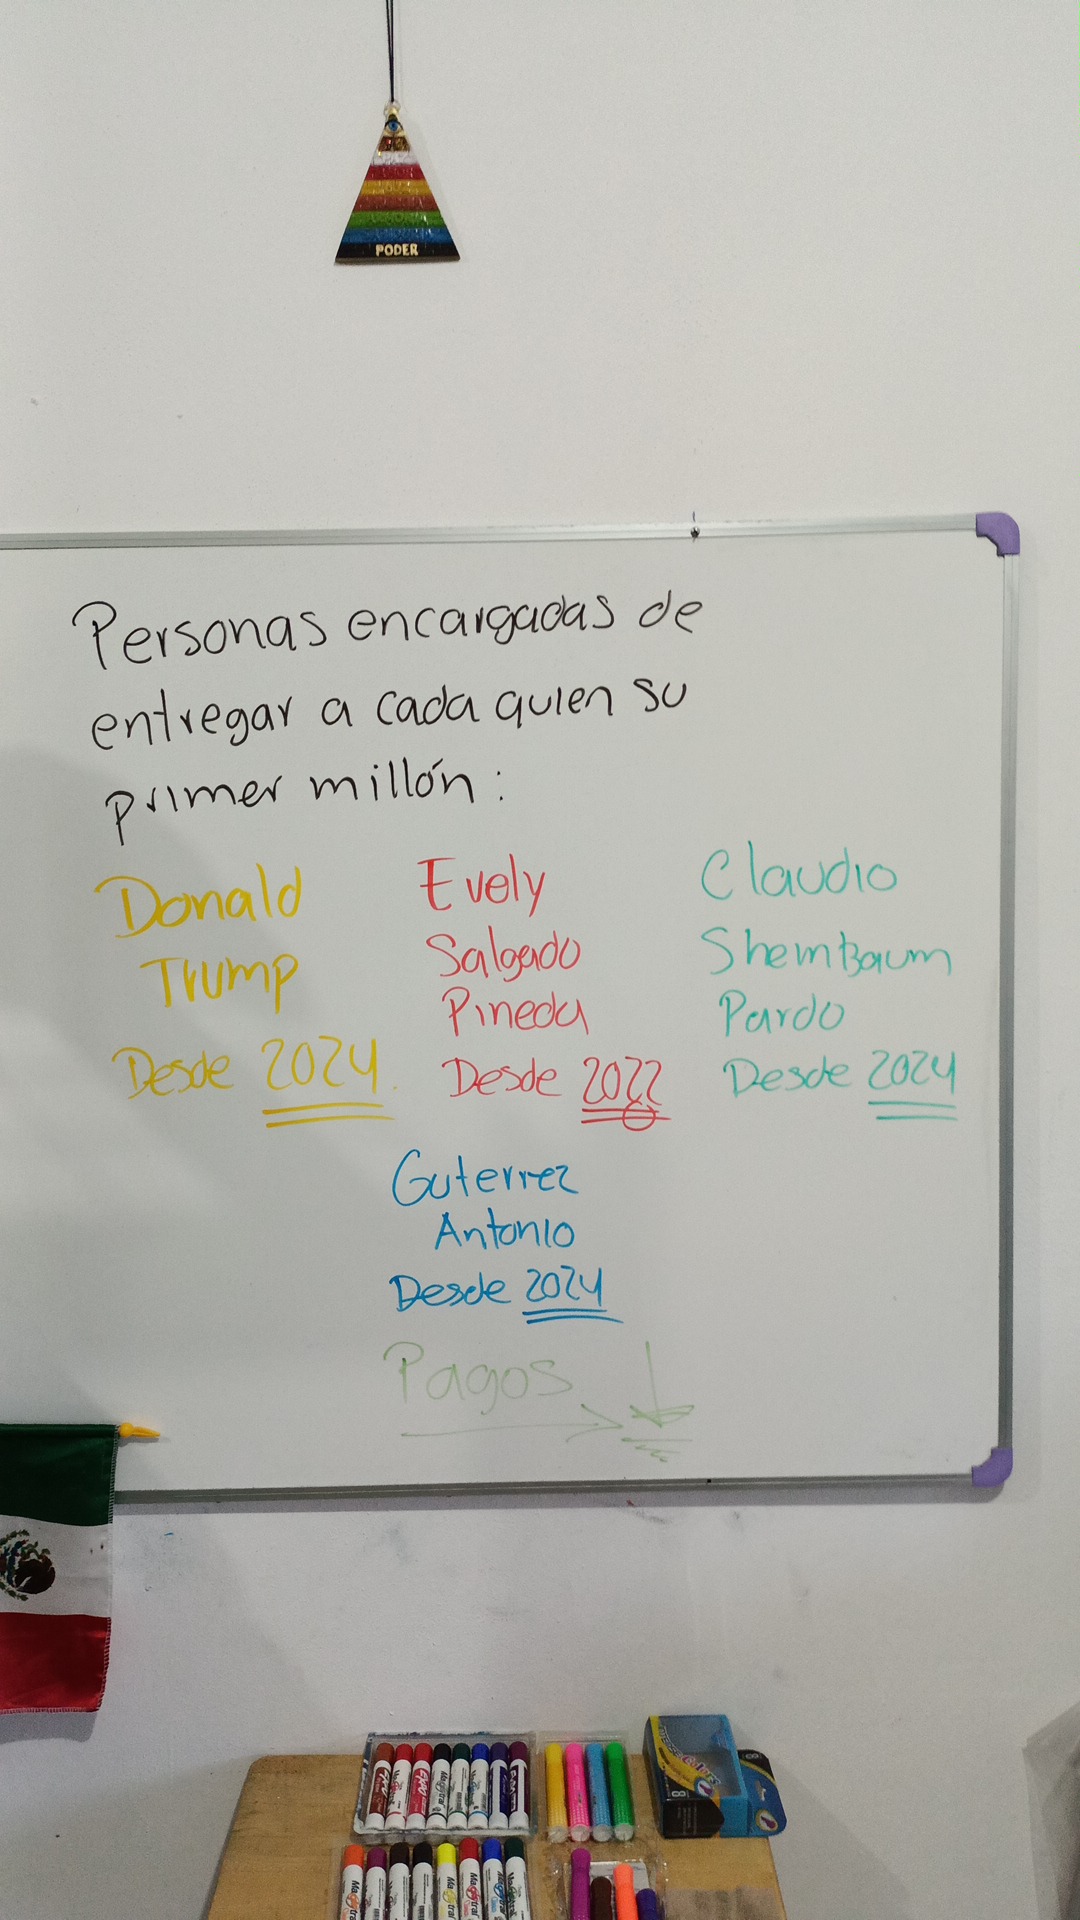 PODER
Personas encargadas de
entregar a cada quien su
primer millón:
Donald
Trump
Desde 2024.
Evely
Salgado
Pineda
Desde 2022
Claudio
Shembaum
Pardo
Desde 2024
Guterrez
Antonio
Desde 2024
Pagos